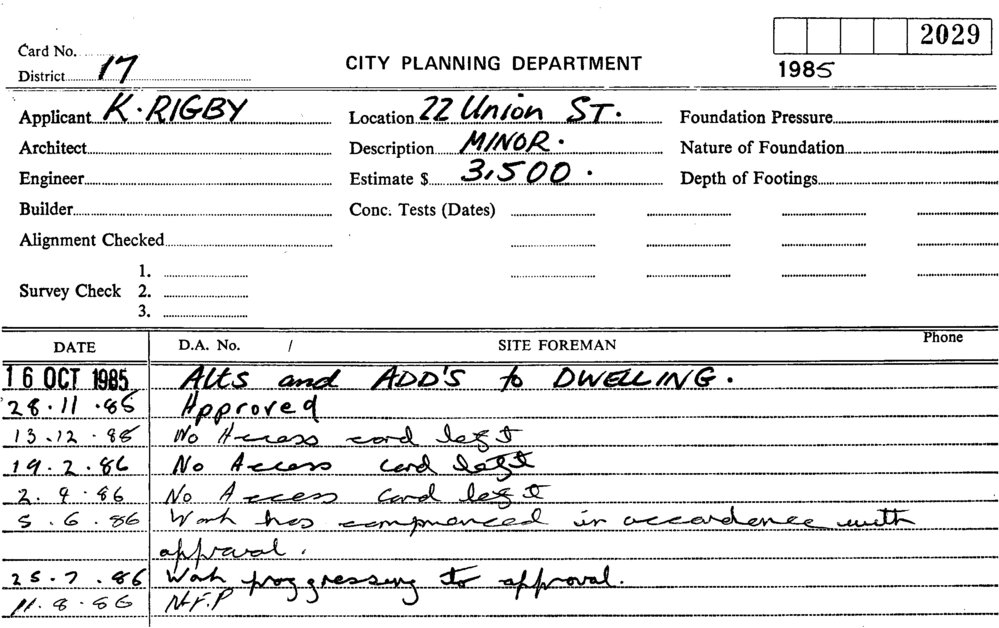 2029
Card No.
District 17
CITY PLANNING DEPARTMENT
1985
Applicant K. RIGBY
Location 22 Union ST.
Foundation Pressure
Architect
Description MINOR.
Nature of Foundation
Engineer
Estimate $ 3,500.
Depth of Footings
Builder
Conc. Tests (Dates)
Alignment Checked
1.
Survey Check 2.
3.
DATE D.A. No. / SITE FOREMAN Phone
16 OCT 1985 Alts and ADD'S to DWELLING.
28.11.85 Approved
13.12.85 No Access card left
19.2.86 No Access card left
2.4.86 No Access card left
5.6.86 Work has commenced in accordence with
approval.
25.7.86 Work progressing to approval.
11.8.86 N.F.P